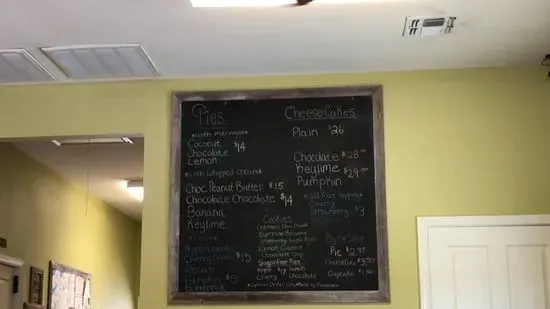 Pies
with meringue
Coconut
Chocolate $14
Lemon
with whipped cream
Choc. Peanut Butter $15
Chocolate Chocolate $14
Banana
Keylime
Pecan
Pumpkin $13
CheeseCakes
Plain $26
Chocolate $28.00
Keylime $29.00
Pumpkin
add fruit topping
Cherry
Strawberry $3
Cookies
Oatmeal Choc Chunk
Espresso Brownie
Cranberry Apple
Lemon Coconut
Chocolate Chip
Sugarfree Pies
Apple $17 Lemon
Cherry Chocolate
By the Slice
Pie $2.95
Cheesecake $3.50
Cupcake